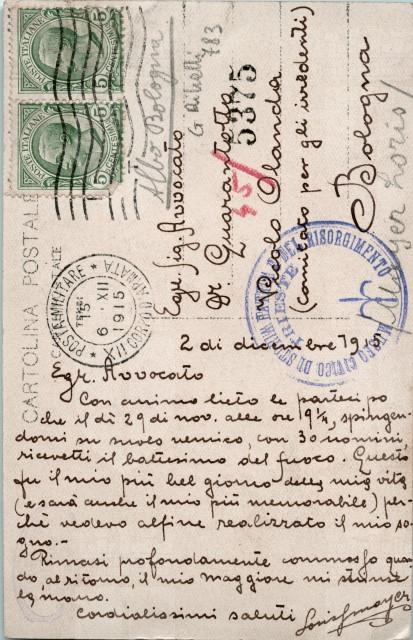 POSTE ITALIANE
CENTESIMI 5
POSTE ITALIANE
CENTESIMI 5
Albo Bologna
783
5375
45
Egr. Sig. Avvocato
Quarantotto
Vicolo Olanda
(Comitato per gli irredenti)
Bologna
CARTOLINA POSTALE
POSTA MILITARE
15
6 XII
1915
CORPO D'ARMATA
MUSEO CIVICO DI STORIA PATRIA E DEL RISORGIMENTO
TRIESTE
2 di dicembre 1915
Egr. Avvocato
Con animo lieto le partecipo
che il dì 29 di nov. alle ore 9 1/4, spingen-
domi su suolo nemico, con 30 uomini,
ricevetti il battesimo del fuoco. Questo
fu il mio più bel giorno della mia vita
(e sarà anche il mio più memorabile) per-
chè vedevo alfine realizzato il mio so-
gno.-
Rimasi profondamente commosso quan-
do, al ritorno, il mio maggiore mi strinse
la mano.
Cordialissimi saluti